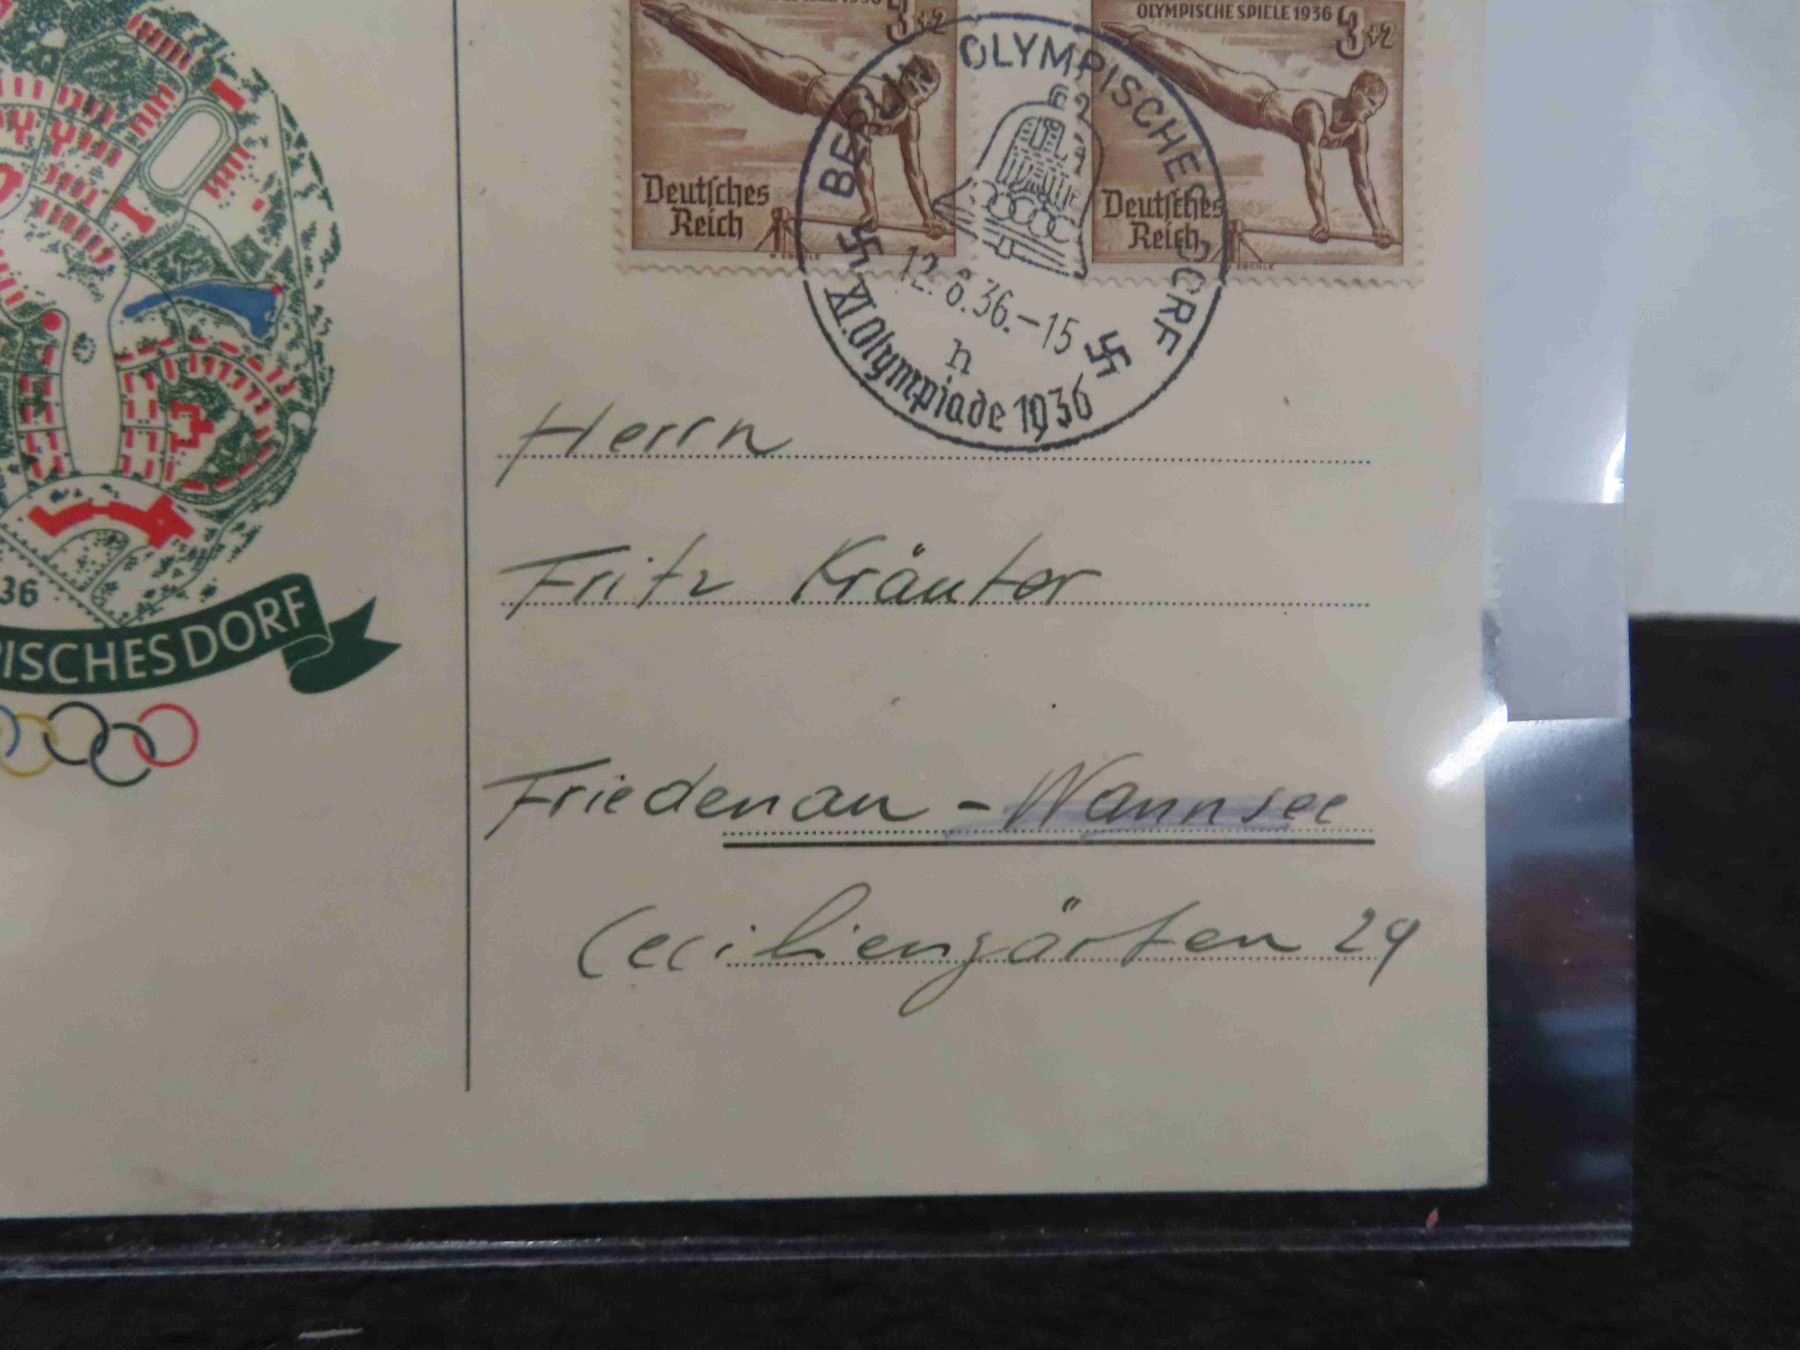 1936 3+2
OLYMPISCHE SPIELE 1936 3+2
Deutsches
Reich
Deutsches
Reich
BERLIN OLYMPISCHES DORF
12.8.36.-15
h
XI. Olympiade 1936
Herrn
Fritz Kräuter
Friedenau - Wannsee
Ceciliengärten 29
36
PISCHES DORF